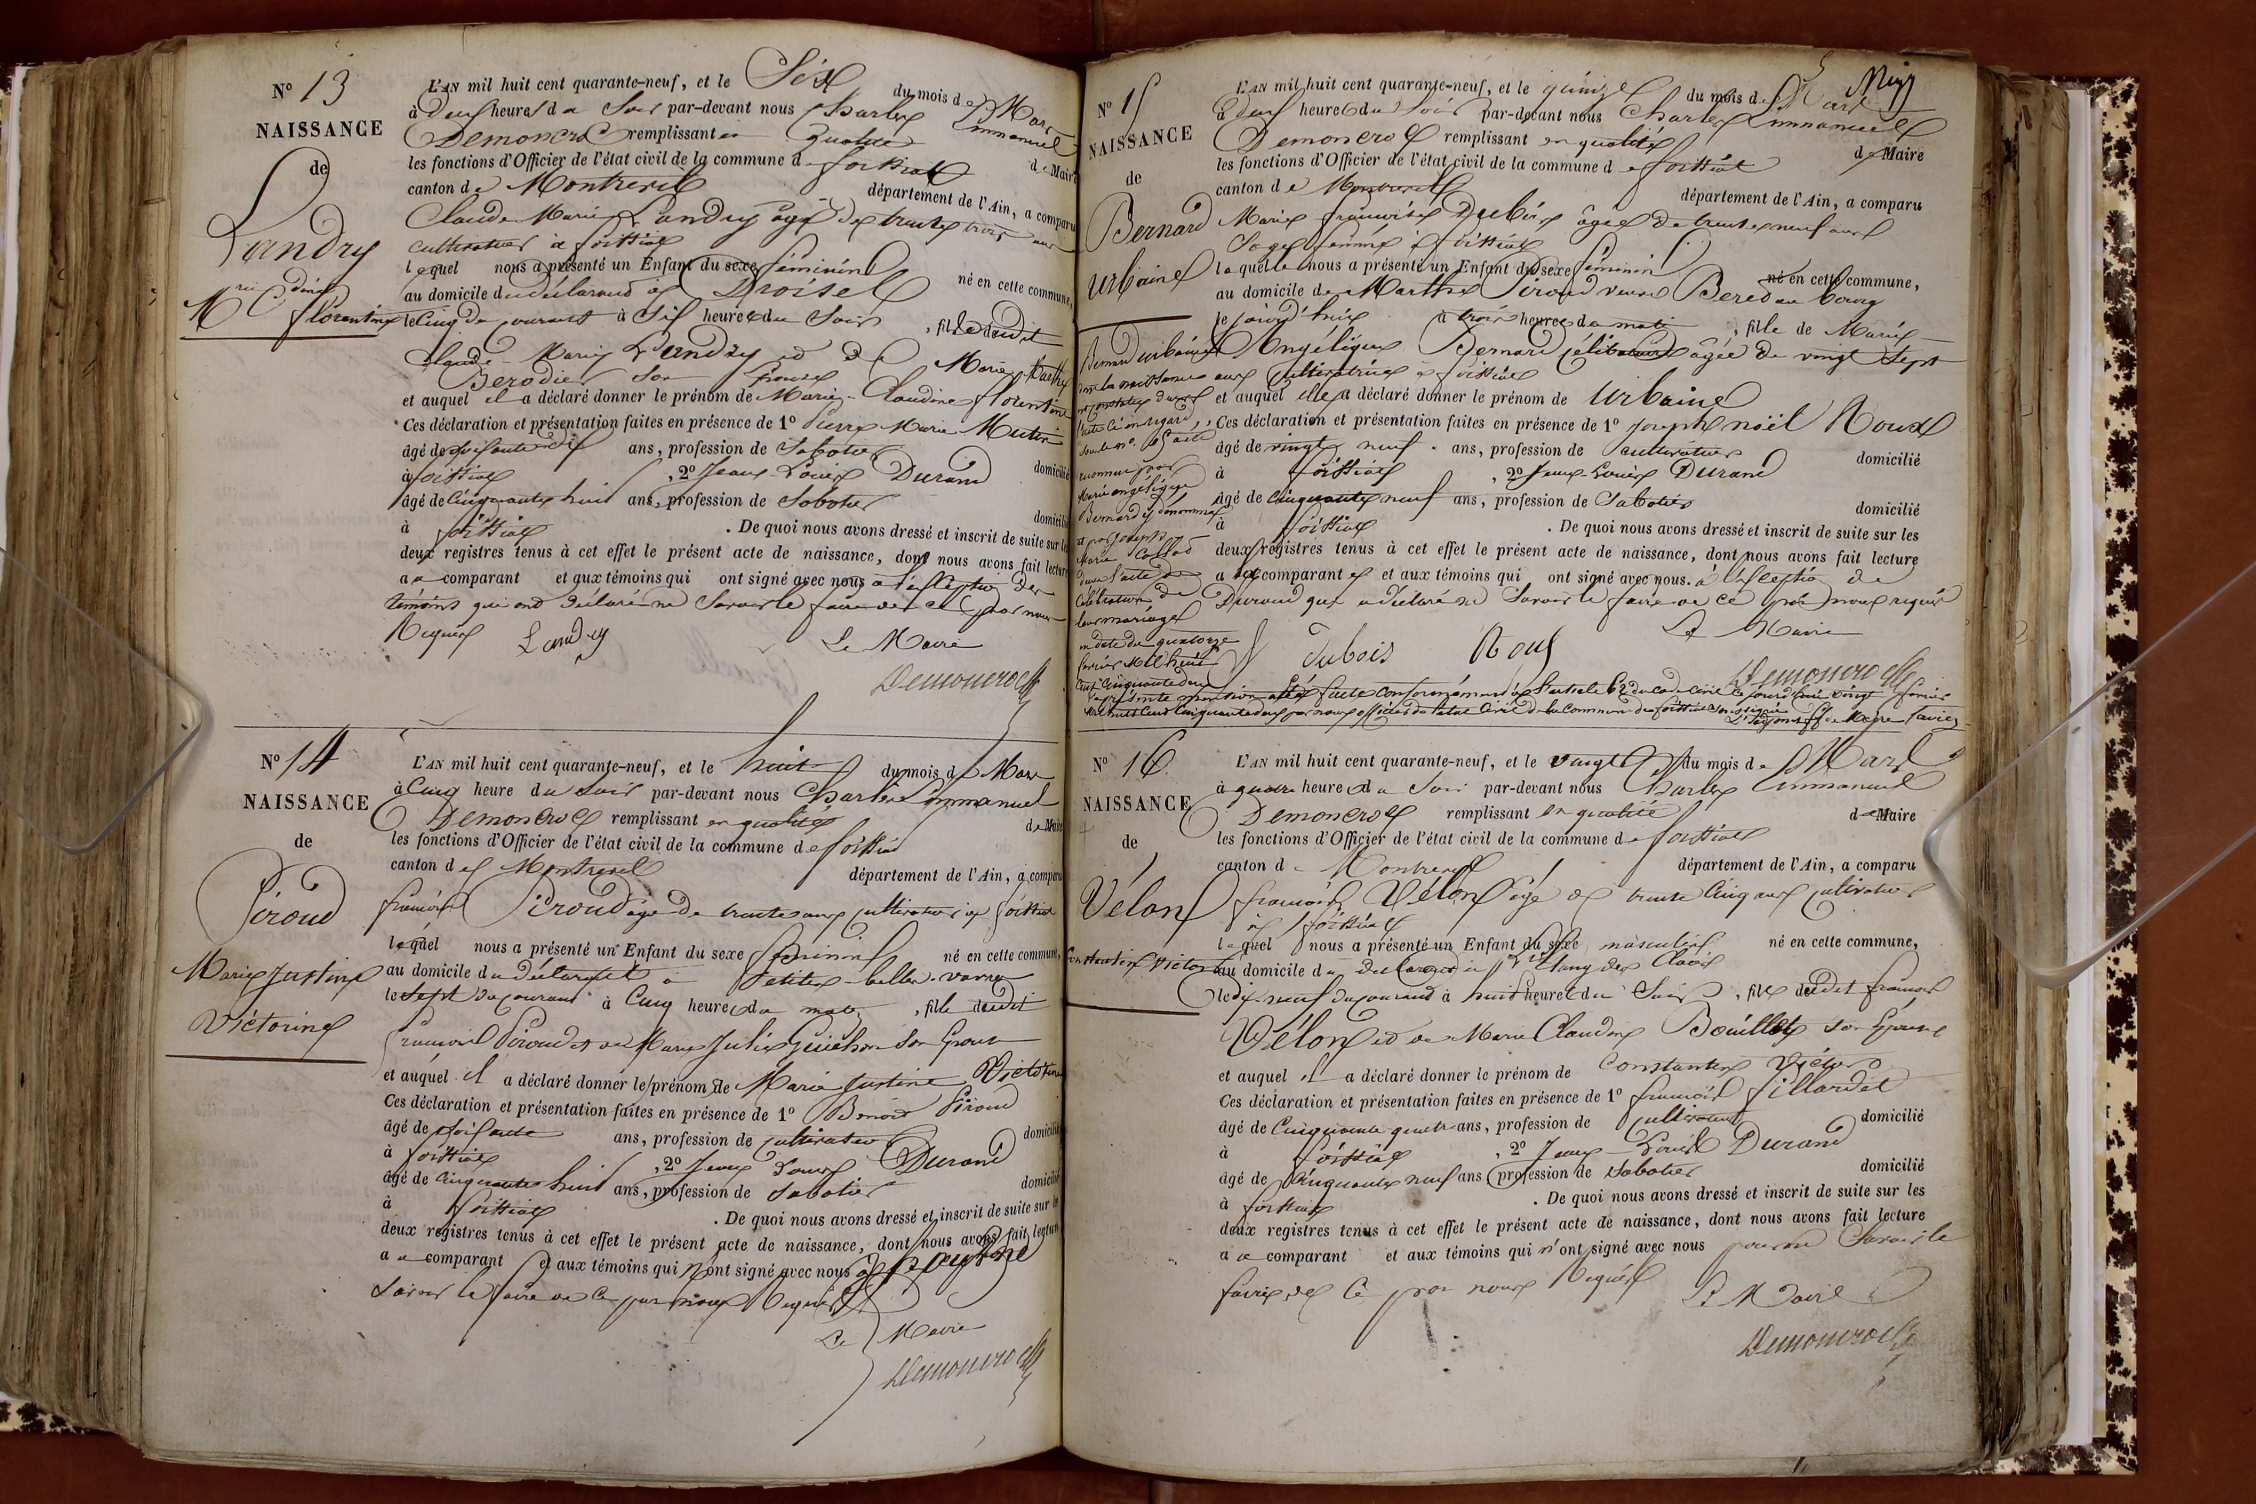 N° 13
NAISSANCE
de
Landry
Mrie Cdine
florentine
L'AN mil huit cent quarante-neuf, et le Six du mois de Mars
à Deux heures du Soir par-devant nous Charles Emmanuel
Demoncroc remplissant en qualité de Maire
les fonctions d'Officier de l'état civil de la commune de foissiat
canton de Montrevel département de l'Ain, a comparu
Claude Marie Landry âgé de trente trois ans
cultivateur à foissiat
lequel nous a présenté un Enfant du sexe féminin né en cette commune,
au domicile du déclarant Droisel
le Cinq du courant à Six heures du Soir, fille dudit
Claude Marie Landry et de Marie Marthe
Berodier son épouse
et auquel il a déclaré donner le prénom de Marie Claudine florentine
Ces déclaration et présentation faites en présence de 1° Pierre Marie Mutin
âgé de Soixante dix ans, profession de Sabotier domicilié
à foissiat, 2° Jean Louis Durand
âgé de Cinquante huit ans, profession de Sabotier domicilié
à foissiat. De quoi nous avons dressé et inscrit de suite sur les
deux registres tenus à cet effet le présent acte de naissance, dont nous avons fait lecture
au comparant et aux témoins qui ont signé avec nous à l'exception des
témoins qui ont déclaré ne Savoir le faire de ce par nous
Requis Landry Le Maire
Demoncroc
N° 14
NAISSANCE
de
Piroud
Marie Justine
Victorine
L'AN mil huit cent quarante-neuf, et le huit du mois de Mars
à Cinq heure du Soir par-devant nous Charles Emmanuel
Demoncroc remplissant en qualité de Maire
les fonctions d'Officier de l'état civil de la commune de foissiat
canton de Montrevel département de l'Ain, a comparu
françois Piroud âgé de trente ans cultivateur à foissiat
lequel nous a présenté un Enfant du sexe féminin né en cette commune,
au domicile du déclarant à Petite
le Sept du courant à Cinq heures du matin, fille dudit
françois Piroud et de Marie Julie Guichon Son épouse
et auquel il a déclaré donner le prénom de Marie Justine Victorine
Ces déclaration et présentation faites en présence de 1° Benoit Piroud
âgé de Soixante ans, profession de cultivateur domicilié
à foissiat, 2° Jean Louis Durand
âgé de Cinquante huit ans, profession de Sabotier domicilié
à foissiat. De quoi nous avons dressé et inscrit de suite sur les
deux registres tenus à cet effet le présent acte de naissance, dont nous avons fait lecture
au comparant et aux témoins qui n'ont signé avec nous
Savoir le faire de ce par nous Requis
Le Maire
Demoncroc
N° 15
NAISSANCE
de
Bernard
Urbaine
L'AN mil huit cent quarante-neuf, et le quinze du mois de Mars
à deux heures du Soir par-devant nous Charles Emmanuel
Demoncroc remplissant en qualité de Maire
les fonctions d'Officier de l'état civil de la commune de foissiat
canton de Montrevel département de l'Ain, a comparu
Marie françoise Dubois âgée de trente neuf ans
Sage femme à foissiat
laquelle nous a présenté un Enfant du sexe féminin né en cette commune,
au domicile de Marthe Piroud veuve Bered au bourg
le jourd'hui à trois heures du matin, fille de Marie
Angélique Bernard célibataire âgée de vingt Sept
ans cultivatrice à foissiat
et auquel elle a déclaré donner le prénom de Urbaine
Ces déclaration et présentation faites en présence de 1° Joseph noël Roux
âgé de vingt neuf ans, profession de cultivateur domicilié
à foissiat, 2° Jean Louis Durand
âgé de Cinquante neuf ans, profession de Sabotier domicilié
à foissiat. De quoi nous avons dressé et inscrit de suite sur les
deux registres tenus à cet effet le présent acte de naissance, dont nous avons fait lecture
aux comparant et aux témoins qui ont signé avec nous à l'exception de
Durand qui a déclaré ne Savoir le faire de ce par nous requis
Le Maire
Dubois Roux
Demoncroc
Bernard urbaine
dont la naissance
est constatée dans
l'acte ci en regard,
sous le n° 15 a été
reconnue par
Marie angélique
Bernard y dénommée
et par Joseph
Marie
dans l'acte de
Célébration de
leur mariage
en date du quatorze
février Mil huit
Cent Cinquante deux
La présente mention a été faite conformément à l'article 62 du code civil ce jourd'hui vingt février
Mil huit Cent Cinquante deux par nous officier de l'état Civil de la Commune de foissiat soussigné
N° 16
NAISSANCE
de
Vélon
Constantin Victor
L'AN mil huit cent quarante-neuf, et le vingt du mois de Mars
à quatre heures du Soir par-devant nous Charles Emmanuel
Demoncroc remplissant en qualité de Maire
les fonctions d'Officier de l'état civil de la commune de foissiat
canton de Montrevel département de l'Ain, a comparu
françois Vélon âgé de trente Cinq ans cultivateur
à foissiat
lequel nous a présenté un Enfant du sexe masculin né en cette commune,
au domicile du déclarant à l'Etang des
le dix neuf du courant à huit heures du Soir, fils dudit françois
Vélon et de Marie Claudine Bouillet son épouse
et auquel il a déclaré donner le prénom de Constantin Victor
Ces déclaration et présentation faites en présence de 1° françois fillardet
âgé de Cinquante quatre ans, profession de cultivateur domicilié
à foissiat, 2° Jean Louis Durand
âgé de Cinquante neuf ans profession de Sabotier domicilié
à foissiat. De quoi nous avons dressé et inscrit de suite sur les
deux registres tenus à cet effet le présent acte de naissance, dont nous avons fait lecture
au comparant et aux témoins qui n'ont signé avec nous pour ne Savoir le
faire de ce par nous Requis
Le Maire
Demoncroc